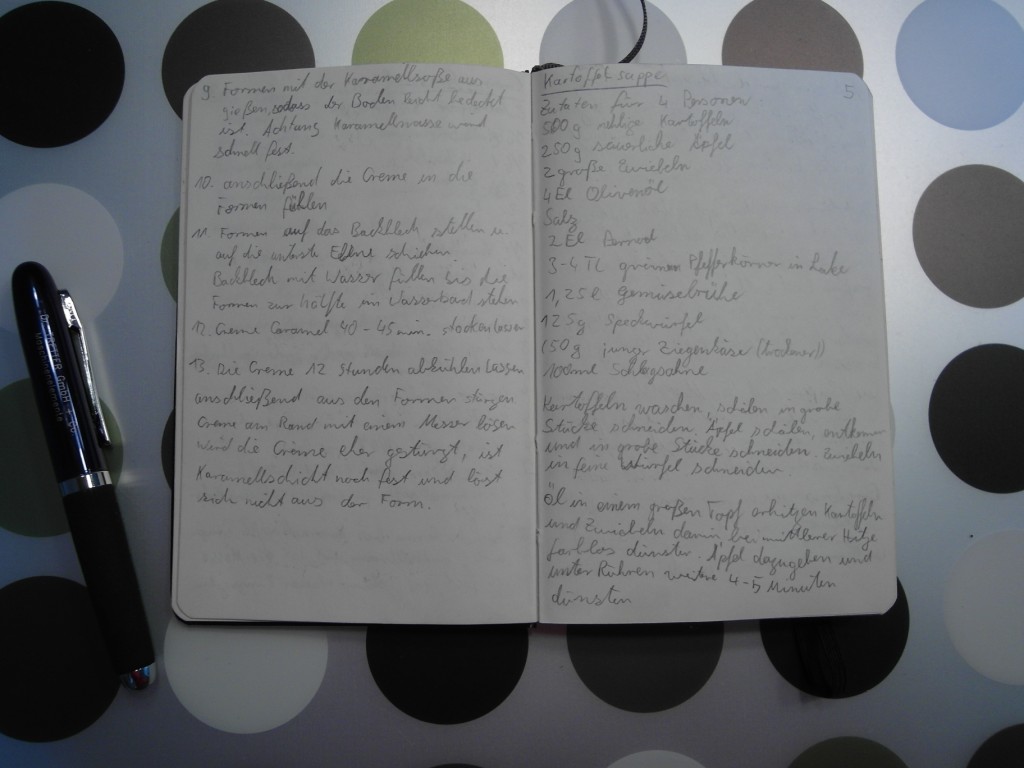 9. Formen mit der Karamellsoße aus
gießen, sodass der Boden leicht bedeckt
ist. Achtung Karamellmasse wird
schnell fest.
10. anschließend die Creme in die
Formen füllen
11. Formen auf das Backblech stellen u.
auf die unterste Ebene schieben.
Backblech mit Wasser füllen bis die
Formen zur Hälfte im Wasserbad stehen
12. Creme Caramel 40-45 min. stocken lassen
13. Die Creme 12 Stunden abkühlen lassen
anschließend aus den Formen stürzen.
Creme am Rand mit einem Messer lösen
Wird die Creme eher gestürzt, ist
Karamellschicht noch fest und löst
sich nicht aus der Form.
Kartoffelsuppe
5
Zutaten für 4 Personen
500 g mehlige Kartoffeln
250 g säuerliche Äpfel
2 große Zwiebeln
4 El Olivenöl
Salz
2 El
3-4 TL grünen Pfefferkörner in Lake
1,25 l Gemüsebrühe
125g Speckwürfel
150 g junger Ziegenkäse
100 ml Schlagsahne
Kartoffeln waschen, schälen in grobe
Stücke schneiden. Äpfel schälen, entkernen
und in grobe Stücke schneiden. Zwiebeln
in feine Würfel schneiden
Öl in einem großen Topf erhitzen Kartoffeln
und Zwiebeln darin bei mittlerer Hitze
farblos dünsten. Äpfel dazugeben und
unter Rühren weitere 4-5 Minuten
dünsten